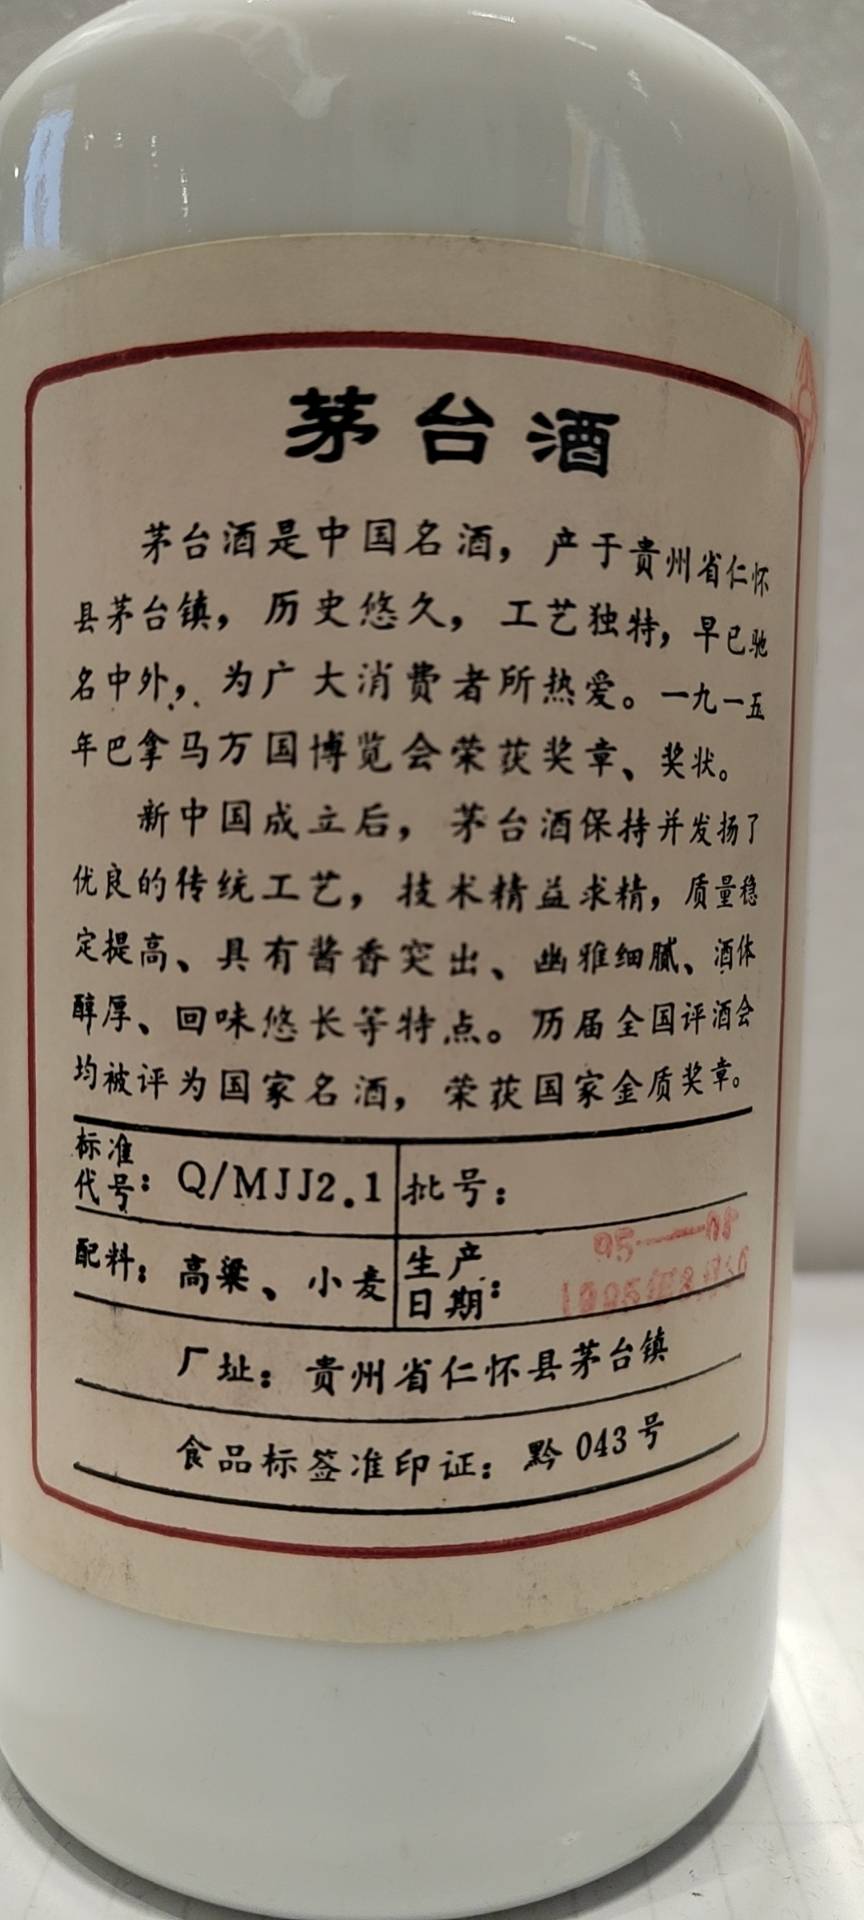 茅台酒
茅台酒是中国名酒，产于贵州省仁怀
县茅台镇，历史悠久，工艺独特，早已驰
名中外，为广大消费者所热爱。一九一五
年巴拿马万国博览会荣获奖章、奖状。
新中国成立后，茅台酒保持并发扬了
优良的传统工艺，技术精益求精，质量稳
定提高、具有酱香突出、幽雅细腻、酒体
醇厚、回味悠长等特点。历届全国评酒会
均被评为国家名酒，荣获国家金质奖章。
标准代号：Q/MJJ2.1 批号：95—
配料：高粱、小麦 生产日期：1995年
厂址：贵州省仁怀县茅台镇
食品标签准印证：黔 043 号